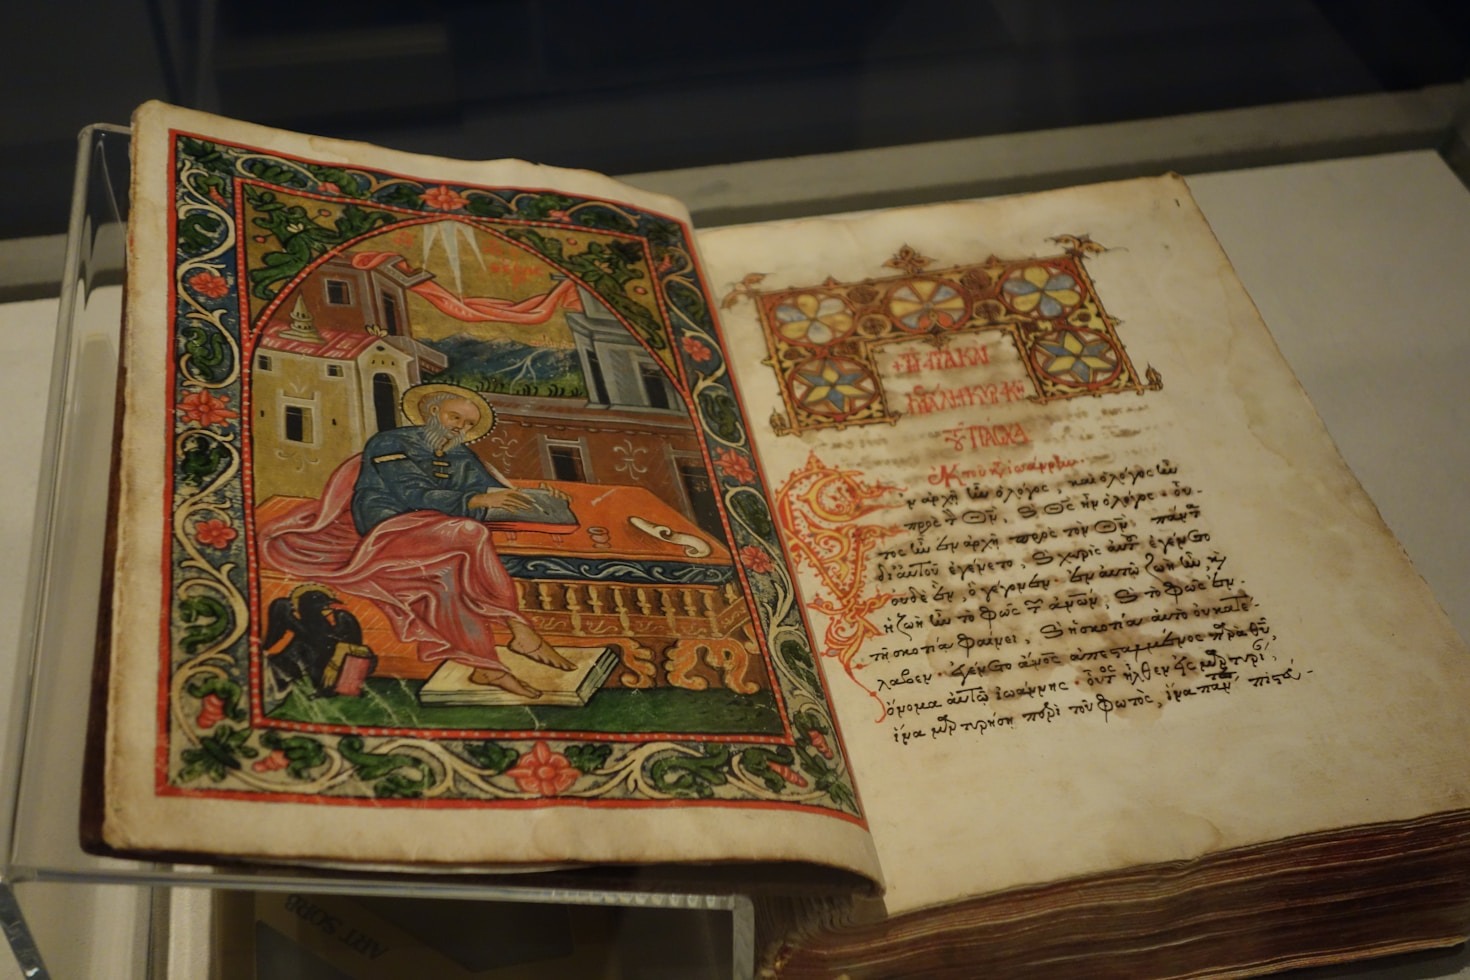 τοῦ Πάσχα
Ἐκ τοῦ κ(α)τ(ὰ) Ἰωάννην.
Ἐν ἀρχῇ ἦν ὁ λόγος, καὶ ὁ λόγος ἦν
πρὸς τ Θν, κ Θς ἦν ὁ λόγος. οὗ-
τος ἦν ἐν ἀρχῇ πρὸς τὸν Θν. πάντ
δι' αὐτοῦ ἐγένετο, κ χωρὶς αὐτ ἐγένετο
οὐδὲ ἕν, ὃ γέγονεν. ἐν αὐτῷ ζωὴ ἦν, κ
ἡ ζωὴ ἦν τὸ φῶς τ ἀνων, κ τὸ φῶς ἐν
τῇ σκοτίᾳ φαίνει, κ ἡ σκοτία αὐτὸ οὐ κατέ-
λαβεν. ἐγένετο ἄνος ἀπεσταλμένος παρὰ Θυ,
ὄνομα αὐτῷ ἰωάννης. οὗτος ἦλθεν εἰς μαρτυρί,
ἵνα μαρτυρήσῃ περὶ τοῦ φωτὸς, ἵνα πάν πιστεύ-
ART SORB